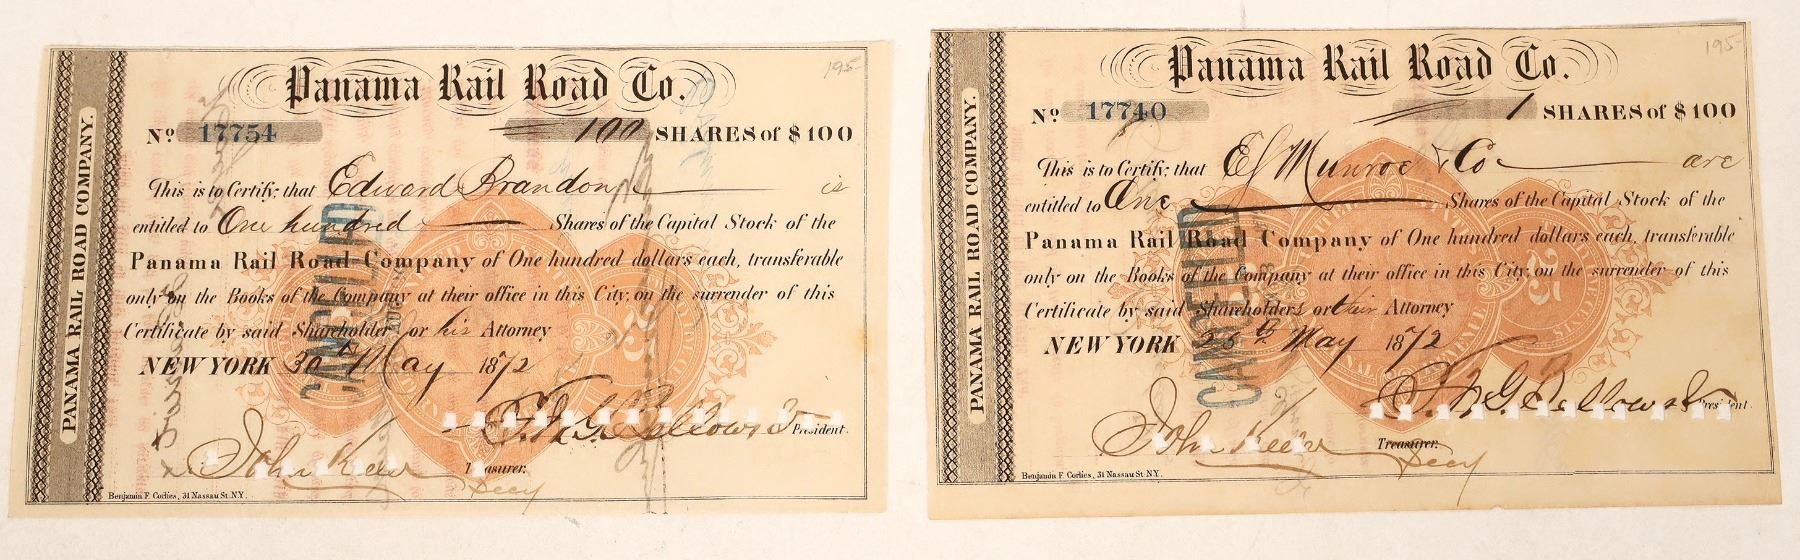 PANAMA RAIL ROAD COMPANY. PANAMA RAIL ROAD COMPANY.
Panama Rail Road Co.
195-
No 17754 100 SHARES of $100
This is to Certify, that Edward Brandon is
entitled to One hundred Shares of the Capital Stock of the
Panama Rail Road Company of One hundred dollars each, transferable
only on the Books of the Company at their office in this City, on the surrender of this
Certificate by said Shareholder or his Attorney
NEW YORK 30th May 1872
CANCELLED
President.
John Treasurer.
Secy
Benjamin F. Corlies, 31 Nassau St. N.Y.
PANAMA RAIL ROAD COMPANY. PANAMA RAIL ROAD COMPANY.
Panama Rail Road Co.
195-
No 17740 1 SHARES of $100
This is to Certify, that Munroe & Co are
entitled to One Shares of the Capital Stock of the
Panama Rail Road Company of One hundred dollars each, transferable
only on the Books of the Company at their office in this City, on the surrender of this
Certificate by said Shareholders or their Attorney
NEW YORK May 1872
CANCELLED
President.
John Treasurer.
Secy
Benjamin F. Corlies, 31 Nassau St. N.Y.